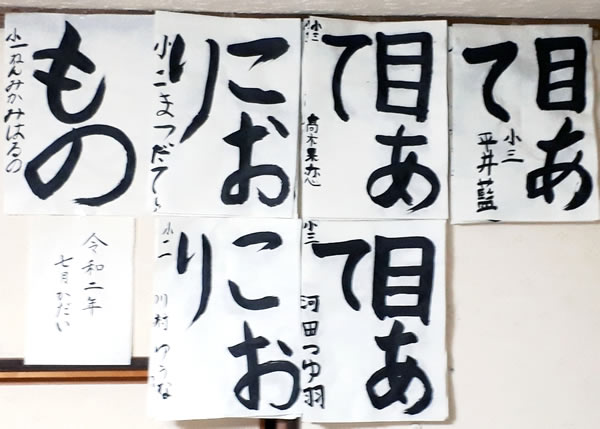 もの
小一ねんみかみはるの
こお
りり
小二まつだてら
目あ
て
小三
髙木果恋
目あ
て
小三
平井藍
令和二年
七月かだい
こお
り
小二
川村ゆうな
目あ
て
小三
河田つゆ羽